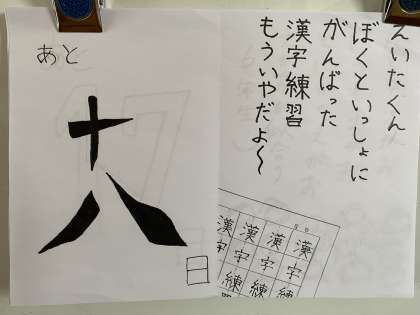 あと
十八
日
えいたくん
ぼくといっしょに
がんばった
漢字練習
もういやだよ〜
漢字練
漢字練
漢字練
漢字